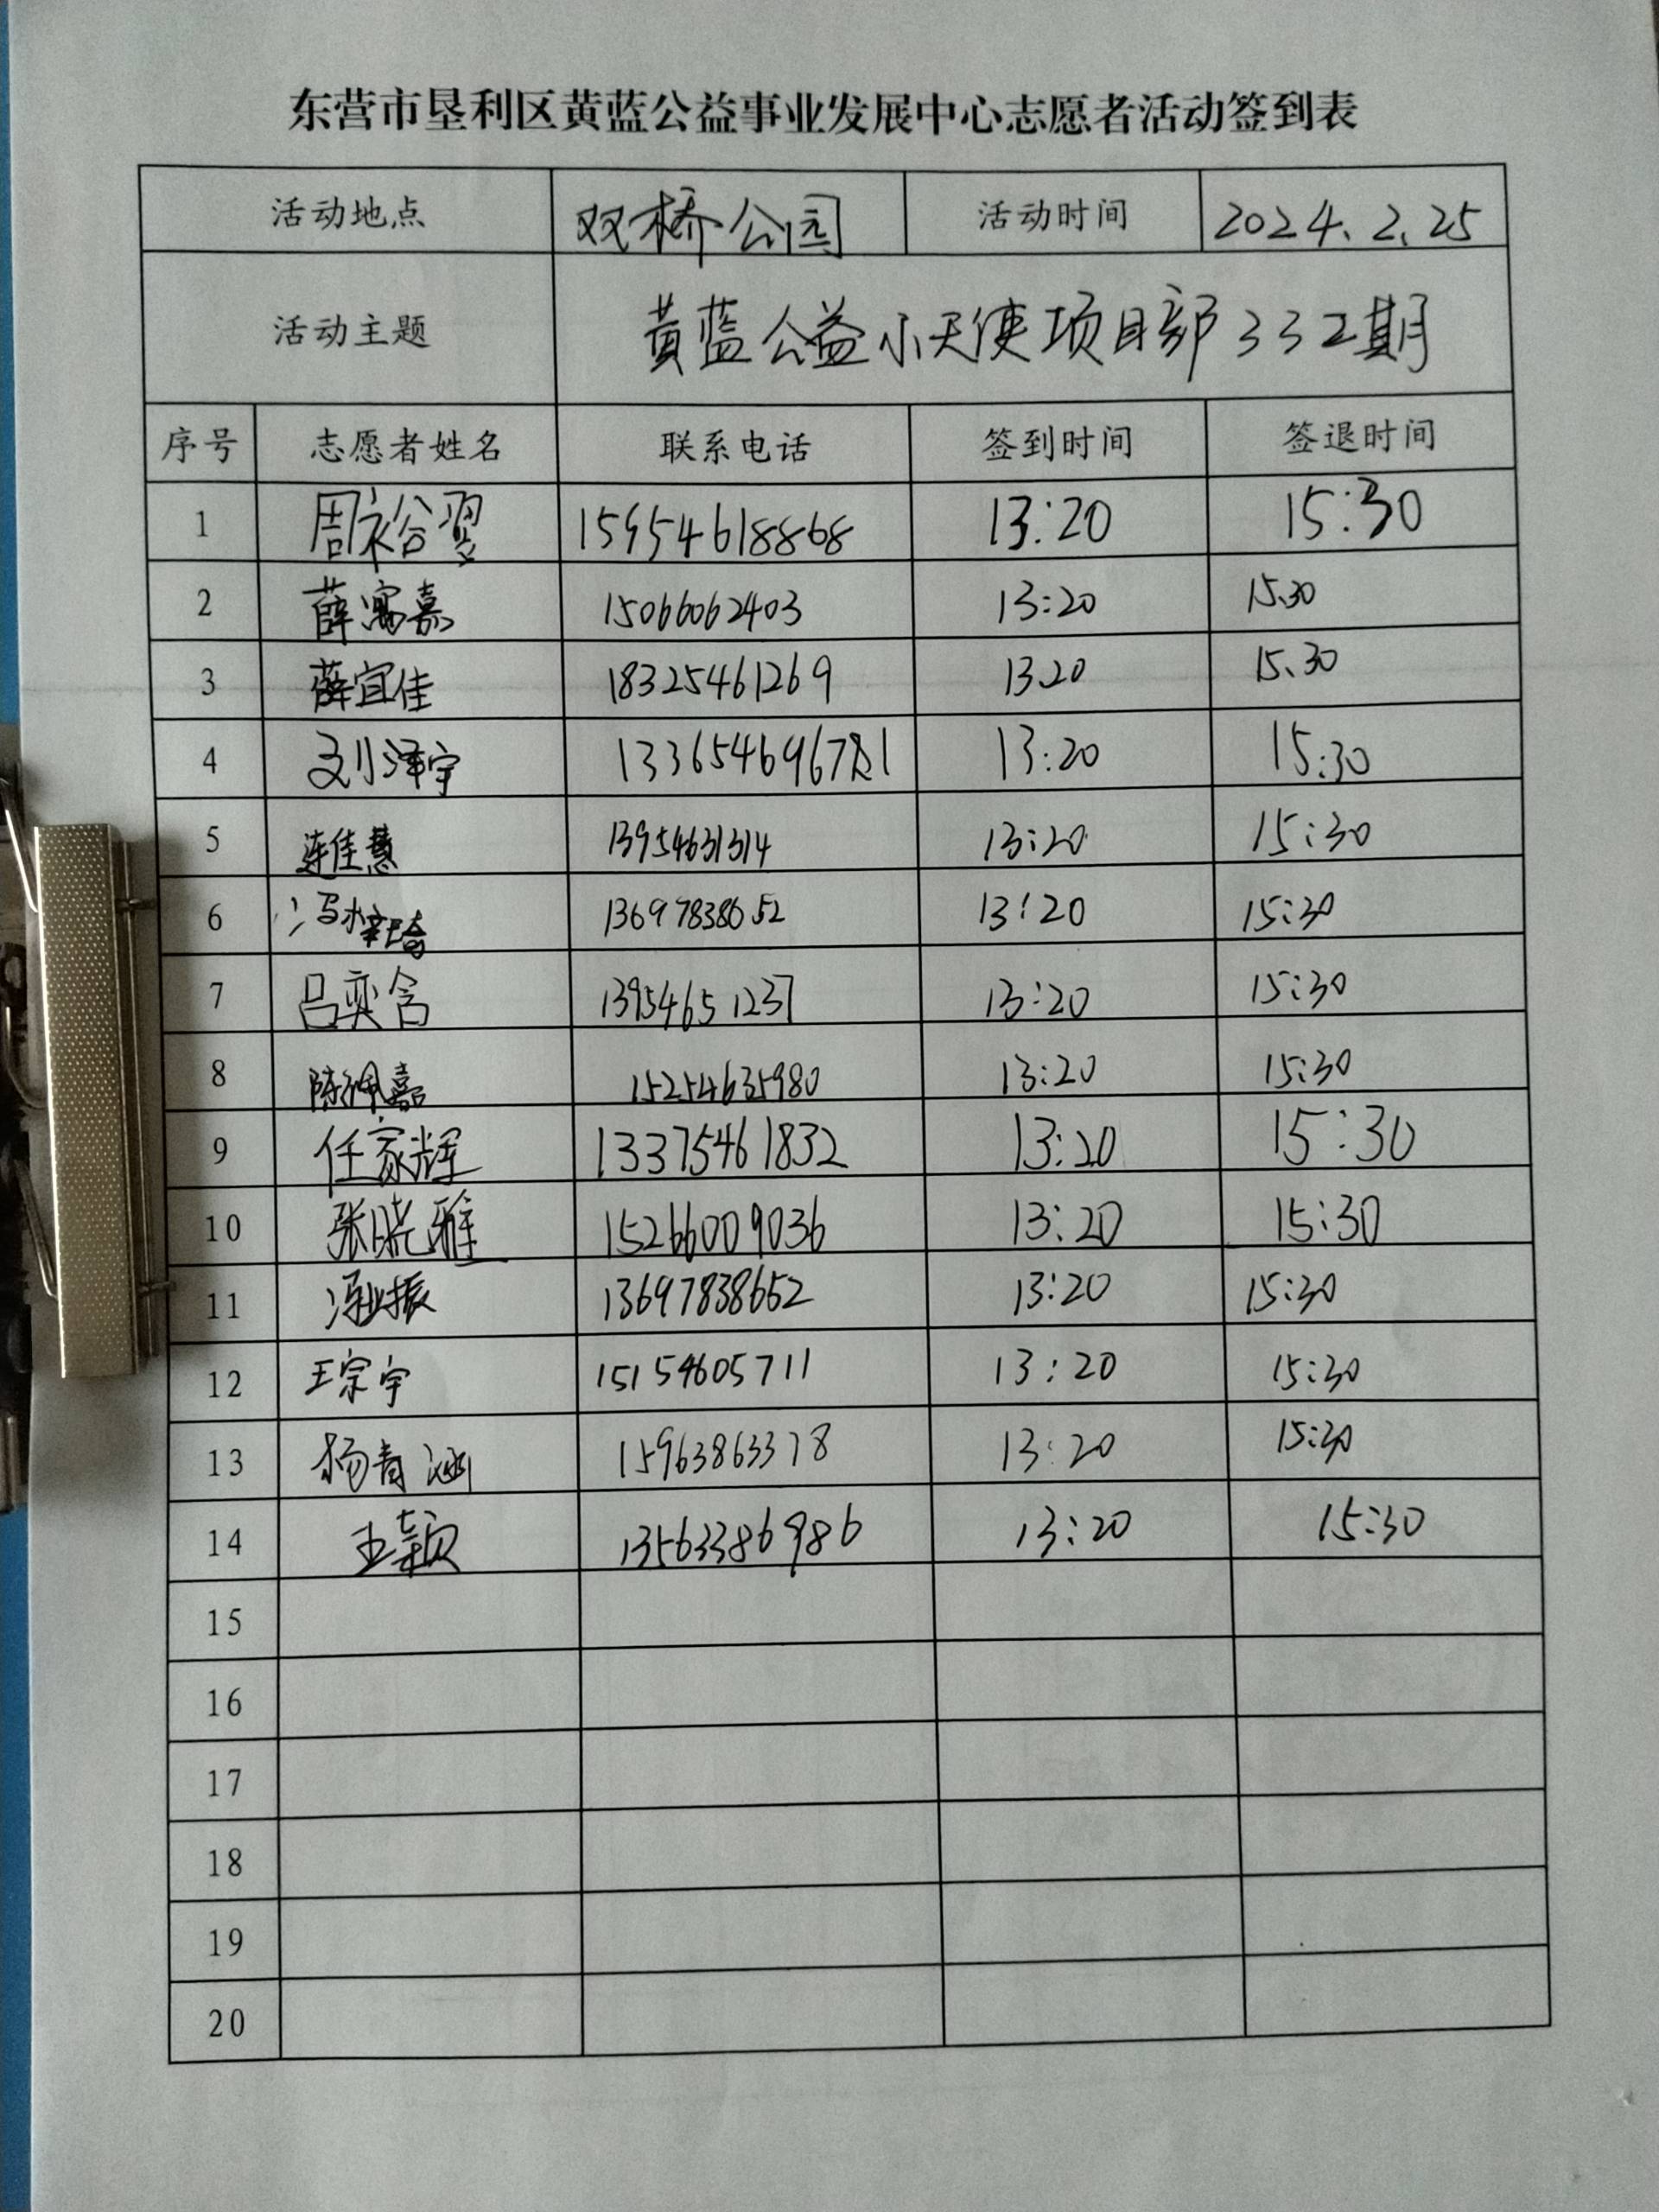 东营市垦利区黄蓝公益事业发展中心志愿者活动签到表
活动地点 双桥公园 活动时间 2024.2.25
活动主题 黄蓝公益小天使项目部332期
序号 志愿者姓名 联系电话 签到时间 签退时间
1 周裕翌 15954618868 13:20 15:30
2 薛富嘉 15066062403 13:20 15.30
3 薛宜佳 18325461269 13.20 15.30
4 刘泽宇 13:20 15:30
5 连佳慧 13954631314 13:20 15:30
6 冯梓琦 13697838652 13:20 15:30
7 吕奕含 13954651237 13:20 15:30
8 陈佩嘉 15254635980 13:20 15:30
9 任家辉 13375461832 13:20 15:30
10 张晓雅 15266009036 13:20 15:30
11 冯业振 13697838652 13:20 15:30
12 王宗宇 15154605711 13:20 15:30
13 杨青涵 15963863378 13:20 15:30
14 王颖 13563386986 13:20 15:30
15
16
17
18
19
20